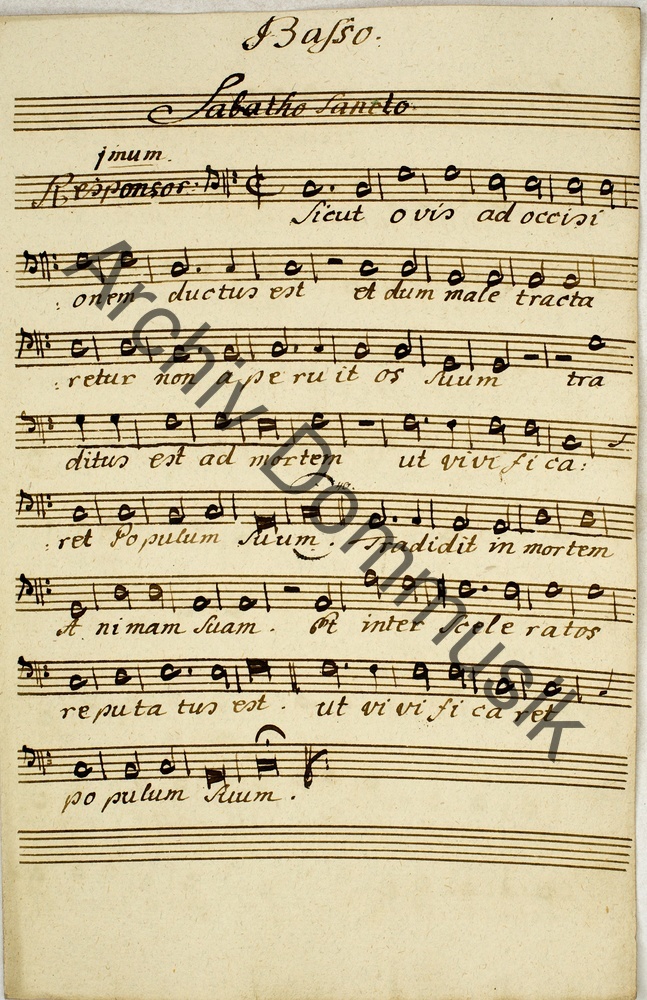 Basso.
Sabatho Sancto.
jmum.
Responsor:
Sicut o vis ad occisi
: onem ductus est et dum male tracta
: retur non a pe ru it os suum tra
ditus est ad mortem ut vi vi fi ca:
: ret Po pulum Suum. Tradidit in mortem
A nimam Suam. Et inter scele ratos
re puta tus est. ut vi vi fi ca ret
po pulum Suum.
Archiv Dommusik